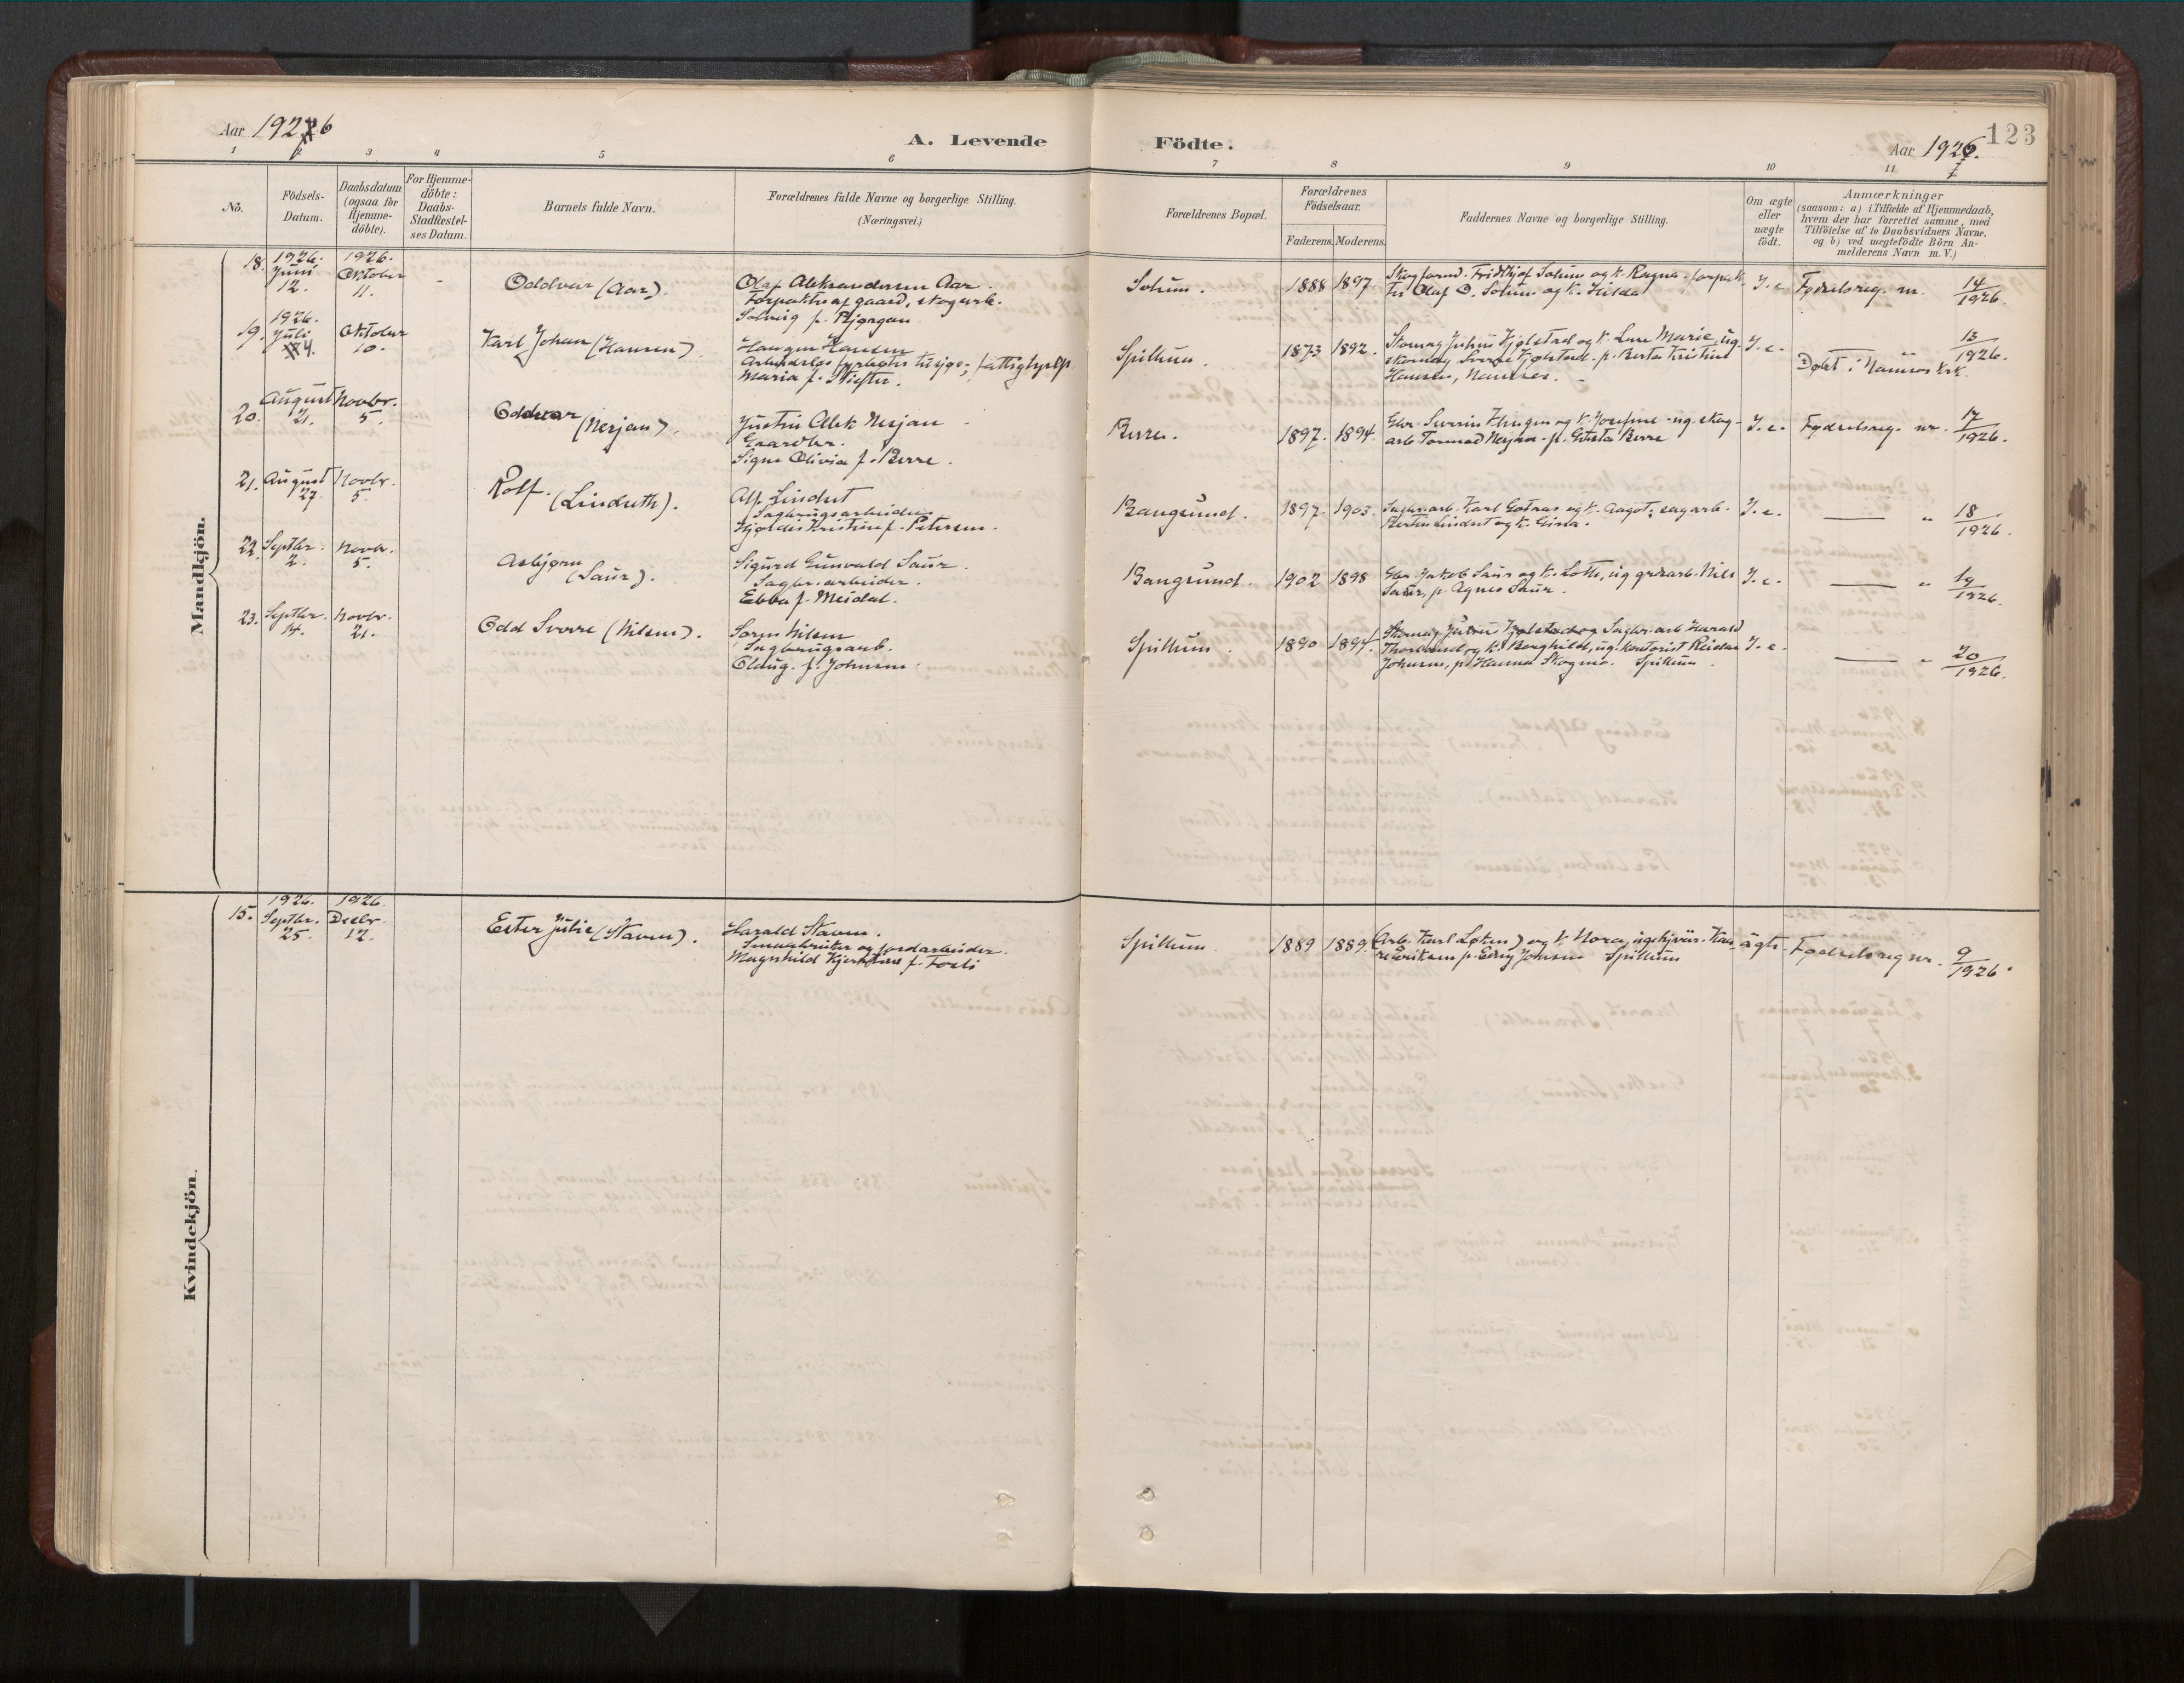 Aar 1926
A. Levende
Födte.
Aar 1926.
123
1 2 3 4 5 6 7 8 9 10 11
No.
Födsels-
Datum.
Daabsdatum
(ogsaa for
Hjemme-
döbte).
For Hjemme-
döbte:
Daabs-
Stadfæstel-
ses Datum.
Barnets fulde Navn.
Forældrenes fulde Navne og borgerlige Stilling.
(Næringsvei.)
Forældrenes Bopæl.
Forældrenes
Födselsaar.
Faderens. Moderens.
Faddernes Navne og borgerlige Stilling.
Om ægte
eller
uægte
födt.
Anmærkninger
(saasom: a) i Tilfælde af Hjemmedaab,
hvem der har forrettet samme, med
Tilföielse af to Daabsvidners Navne.
og b) ved uægtefödte Börn An-
melderens Navn m. V.)
Mandkjön.
18. 1926. Juni 12. 1926. Oktober 11. - Oddvar (Aar).
Olaf Aleksandersen Aar.
Forpakter af gaard, skogarb.
Solveig f. Bjørgan
Solum. 1888 1897.
Skogform. Fridthjof Solum og k. Ragna - forpak-
ter Olaf O. Solum og k. Hilda
I. e. Fødselsreg. nr. 14/1926.
19. 1926. Juli 4. Oktober 10. Karl Johan (Hansen).
Haagen Hansen
Maria f.
Spillum. 1873 1892.
Skomag Julius Kjølstad og k. Lene Marie, ug.
skomag Sverre Kjølstad - p. Berta Kristine
Hansen, Namsos. -
I. e. 13/1926.
Døbt i Namsos krk.
20. August 21. Novbr. 5. Oddvar (Nesjan).
Justin Alek Nesjan
Gaardbr.
Signe Olivia f. Berre.
Berre. 1897. 1894.
Gbr. Severin og k. Josefine - ug. skog-
arb Tormod Nesjan - p. Gusta Berre
I. e. Fødselsreg. nr. 17/1926.
21. August 27. Novbr. 5. Rolf. (Lindseth).
Alf Lindset
Sagbrugsarbeider
Hjørdis Kristine f. Petersen.
Bangsund. 1897. 1903.
Sagbr.arb. Karl Gotvas og k. Aagot; sagarb.
Martin Lindset og k. Gina.
I. e. — " 18/1926.
22. Septbr. 2. Novbr. 5. Asbjørn (Saur).
Sigurd Gunvald Saur.
Sagbr.arbeider.
Ebba f. Meidal.
Bangsund. 1902 1898
Gbr Jakob Saur og k. Lotte, ug grdsarb. Nils
Saur, p. Agnes Saur.
I. e. — " 19/1926.
23. Septbr. 14. Novbr. 21. Odd Sverre (Nilsen).
Søren Nilsen
Sagbrugsarb.
Olaug. f. Johnsen
Spillum. 1890 1894.
Skomag Julius Kjølstad og Sagbr.arb Harald
og k. Borghild, ug. kontorist Reidar
Johnsen, p Hanna Skogmo. Spillum.
I. e. — " 20/1926.
Kvindekjön.
15. 1926. Septbr. 25. 1926. Decbr. 12. Ester Julie (Staven).
Harald Staven.
Smaabruker og jordarbeider.
Magnhild f. Fosli
Spillum. 1889 1889.
(Arb. Karl Løken) og k Nora,
Eriksen p. Johnsen Spillum
ägte. Fødselsreg nr. 9/1926.